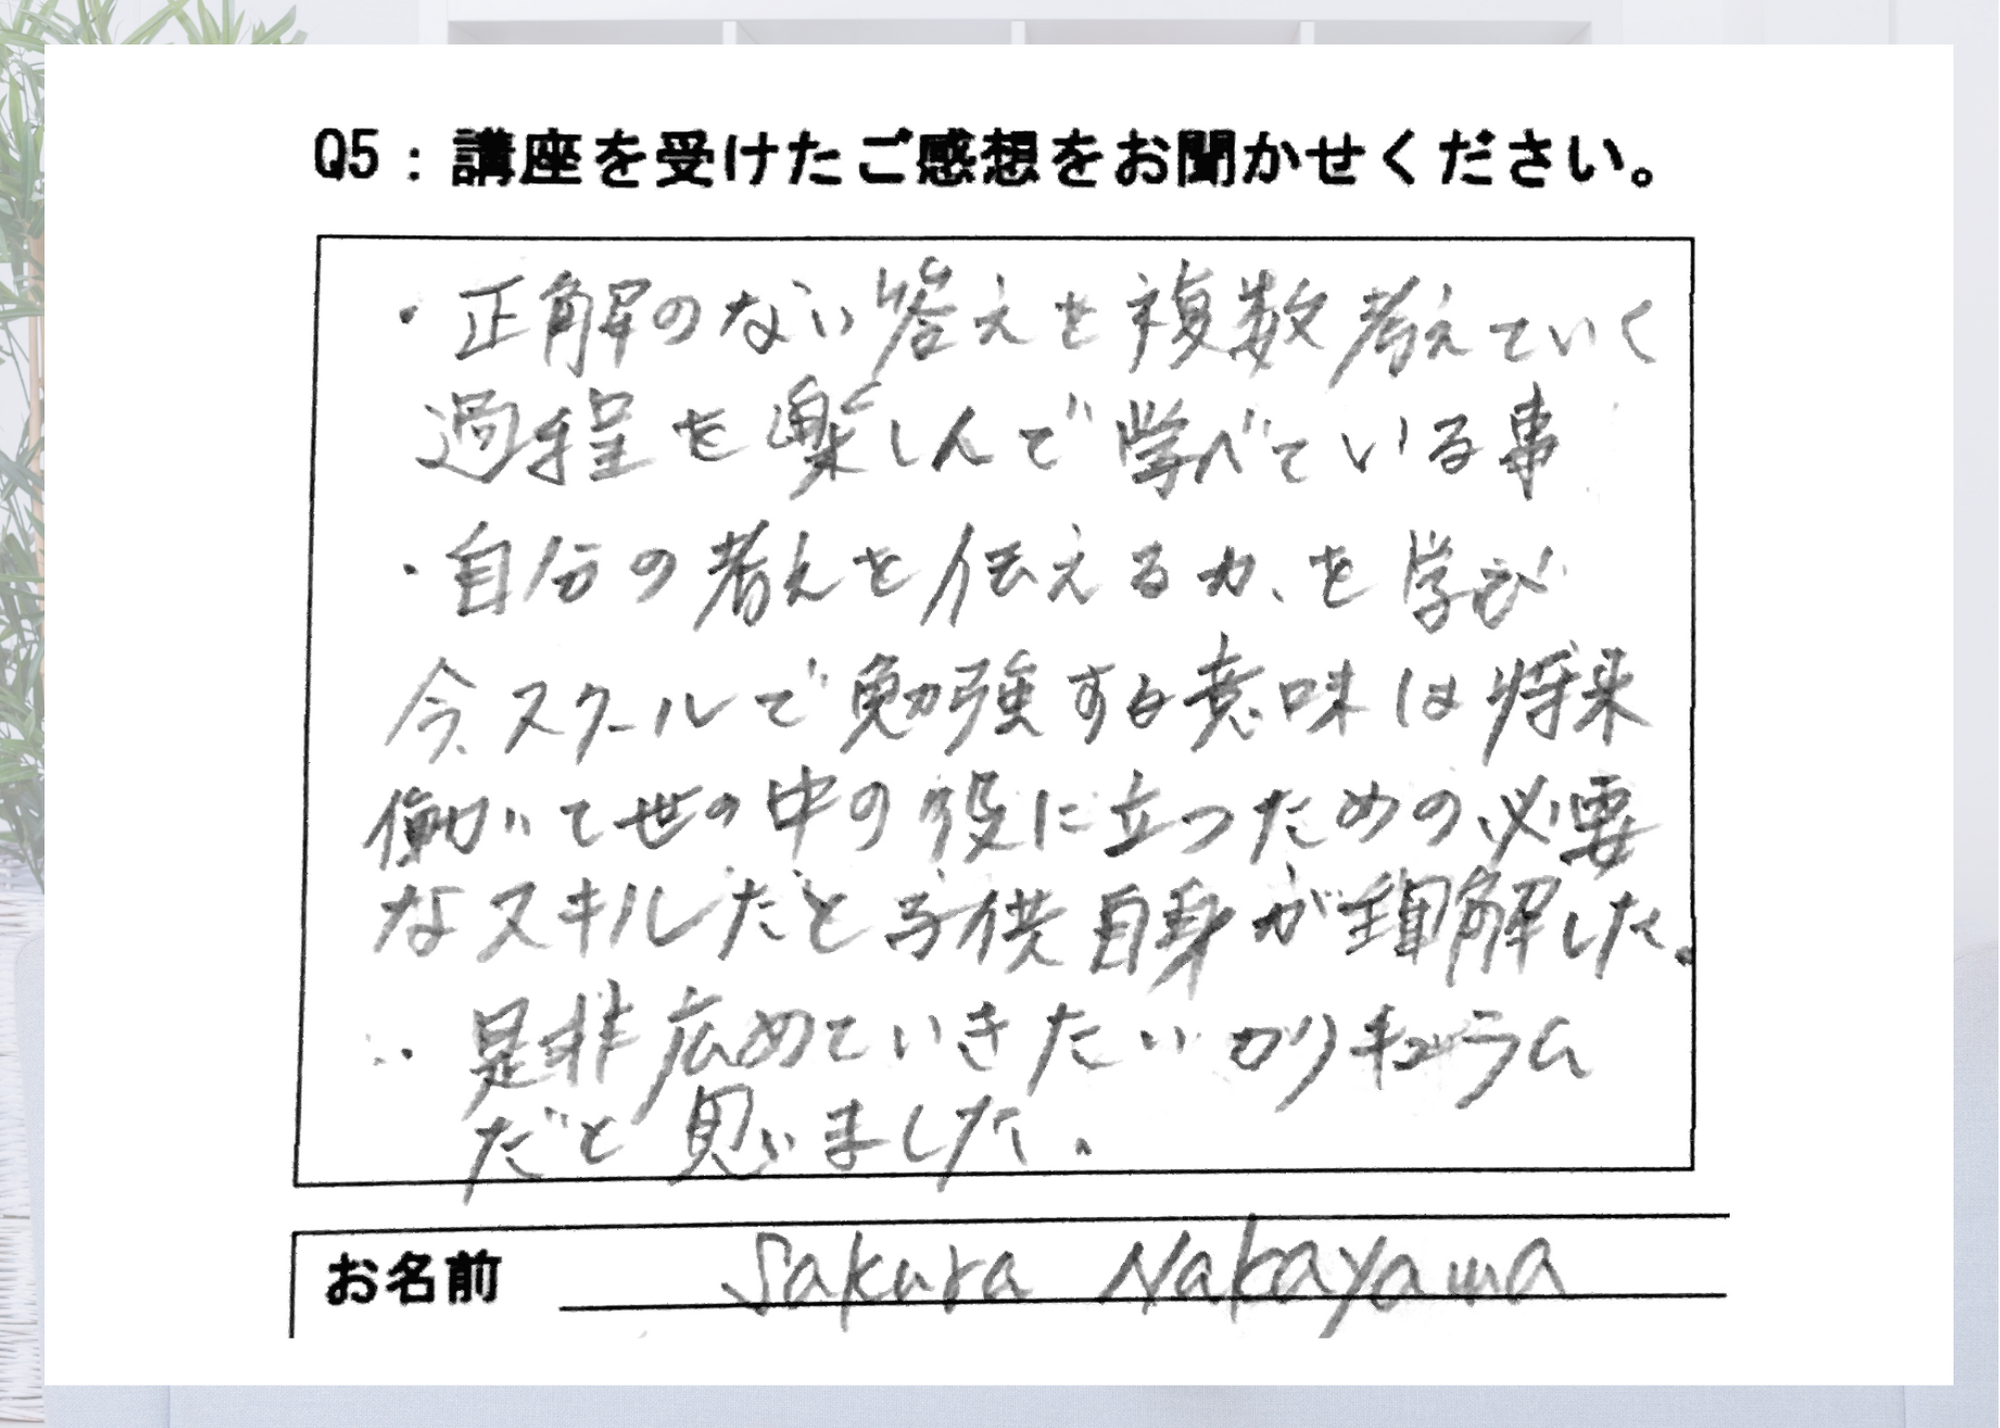 Q5：講座を受けたご感想をお聞かせください。
・正解のない答えを複数考えていく
過程を楽しんで学べている事
・自分の考えを伝える力、を学び
今スクールで勉強する意味は将来
働いて世の中の役に立つための必要
なスキルだと子供自身が理解した。
是非広めていきたいカリキュラム
だと思いました。
お名前 Sakura Nakayama